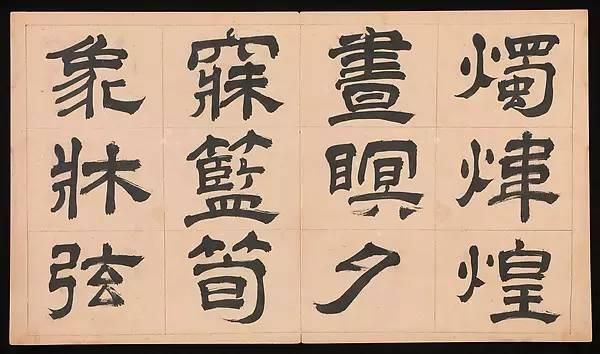 燭煒煌
晝瞑夕
寐籃筍
象牀弦